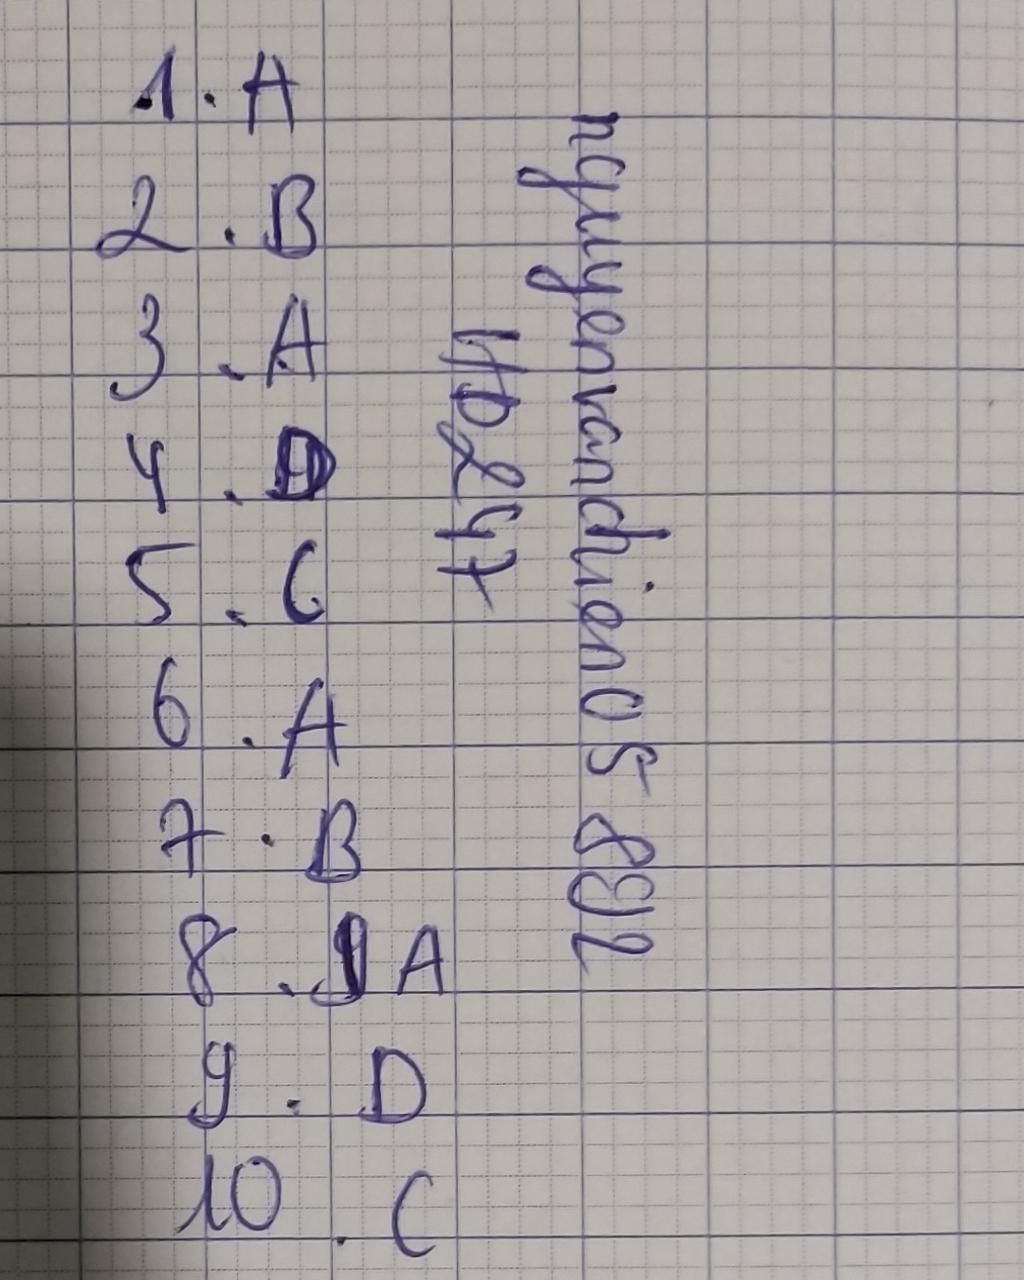 1. A
2. B
3. A
4. D
5. C
6. A
7. B
8. A
9. D
10. C
nguyenvanchien05